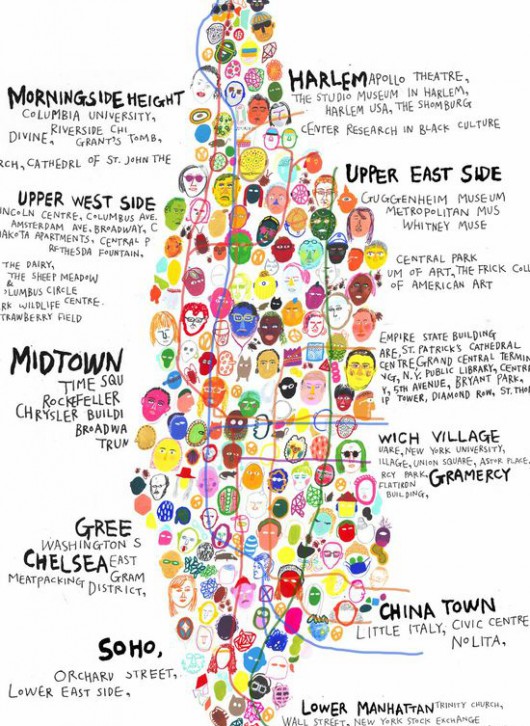 HARLEM APOLLO THEATRE,
THE STUDIO MUSEUM IN HARLEM,
HARLEM USA, THE SHOMBURG
CENTER RESEARCH IN BLACK CULTURE
MORNINGSIDE HEIGHT
COLUMBIA UNIVERSITY,
RIVERSIDE CHI
DIVINE, GRANT'S TOMB,
RCH, CATHEDRL OF ST. JOHN THE
UPPER EAST SIDE
GUGGENHEIM MUSEUM
METROPOLITAN MUS
WHITNEY MUSE
CENTRAL PARK
UM OF ART, THE FRICK COLL
OF AMERICAN ART
UPPER WEST SIDE
INCOLN CENTRE, COLUMBUS AVE.
AMSTERDAM AVE, BROADWAY, C
AKOTA APARTMENTS, CENTRAL P
BETHESDA FOUNTAIN,
THE DAIRY,
THE SHEEP MEADOW
&
OLUMBUS CIRCLE
RK WILDLIFE CENTRE.
TRAWBERRY FIELD
EMPIRE STATE BUILDING
ARE, ST. PATRICK'S CATHEDRAL
CENTRE GRAND CENTRAL TERMIN
NG, N.Y. PUBLIC LIBRARY, CENTRA
Y, 5TH AVENUE, BRYANT PARK,
IP TOWER, DIAMOND ROW, ST. THO
MIDTOWN
TIME SQU
ROCKEFELLER
CHRYSLER BUILDI
BROADWA
TRUN
WICH VILLAGE
UARE, NEW YORK UNIVERSITY,
ILLAGE, UNION SQUARE, ASTOR PLACE,
RCY PARK, GRAMERCY
FLATIRON
BUILDING,
GREE
WASHINGTON S
CHELSEA EAST
MEATPACKING GRAM
DISTRICT,
CHINA TOWN
LITTLE ITALY, CIVIC CENTRE
NOLITA,
SOHO,
ORCHARD STREET,
LOWER EAST SIDE,
LOWER MANHATTAN TRINITY CHURCH,
WALL STREET, NEW YORK STOCK EXCHANGE